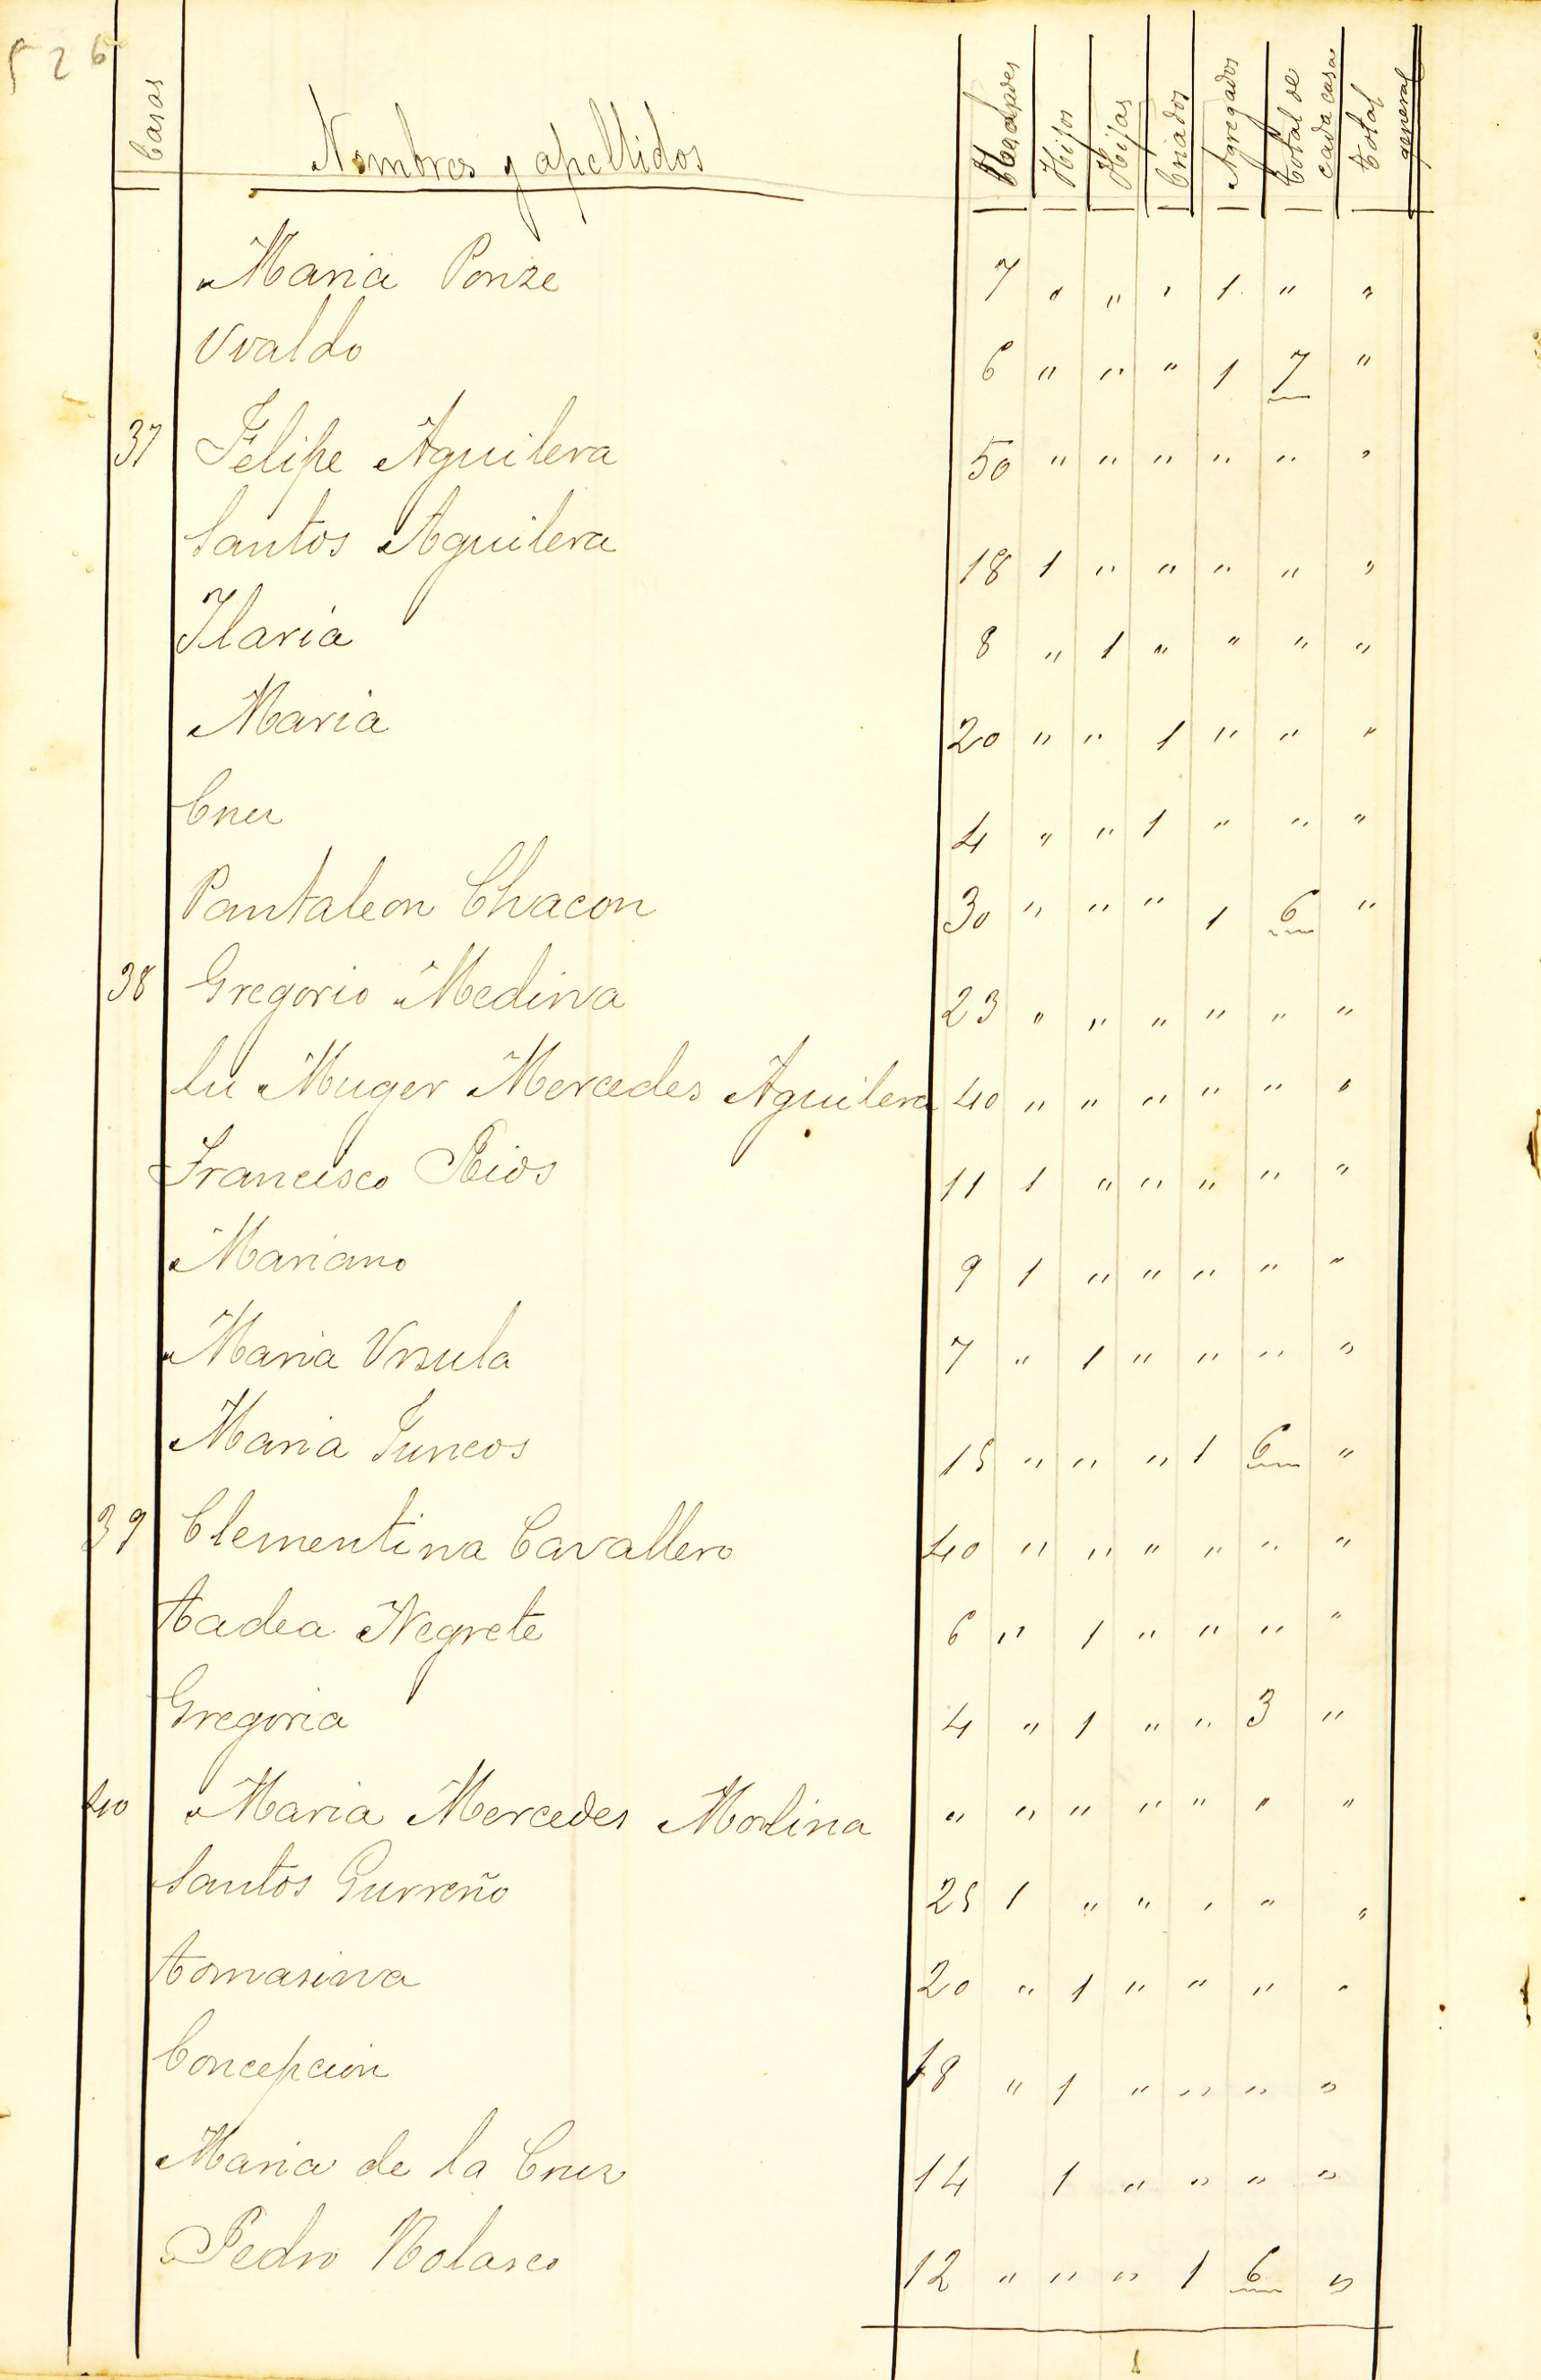 526
Casas Nombres y apellidos Edades Hijos Hijas Criados Agregados Total de cada casa Total general
Maria Ponze 7 " " " 1 " "
Uvaldo 6 " " " 1 7 "
37 Felipe Aguilera 50 " " " " " "
Santos Aguilera 18 1 " " " " "
Ilaria 8 " 1 " " " "
Maria 20 " " 1 " " "
Cruz 4 " " 1 " " "
Pantaleon Chacon 30 " " " 1 6 "
38 Gregorio Medina 23 " " " " " "
Su Muger Mercedes Aguilera 40 " " " " " "
Francisco Rios 11 1 " " " " "
Mariano 9 1 " " " " "
Maria Ursula 7 " 1 " " " "
Maria Juncos 15 " " " 1 6 "
39 Clementina Cavallero 40 " " " " " "
Tadea Negrete 6 " 1 " " " "
Gregoria 4 " 1 " " 3 "
40 Maria Mercedes Molina " " " " " " "
Santos Gurreño 25 1 " " " " "
Tomasina 20 " 1 " " " "
Concepcion 18 " 1 " " " "
Maria de la Cruz 14 1 " " " "
Pedro Nolasco 12 " " " 1 6 "